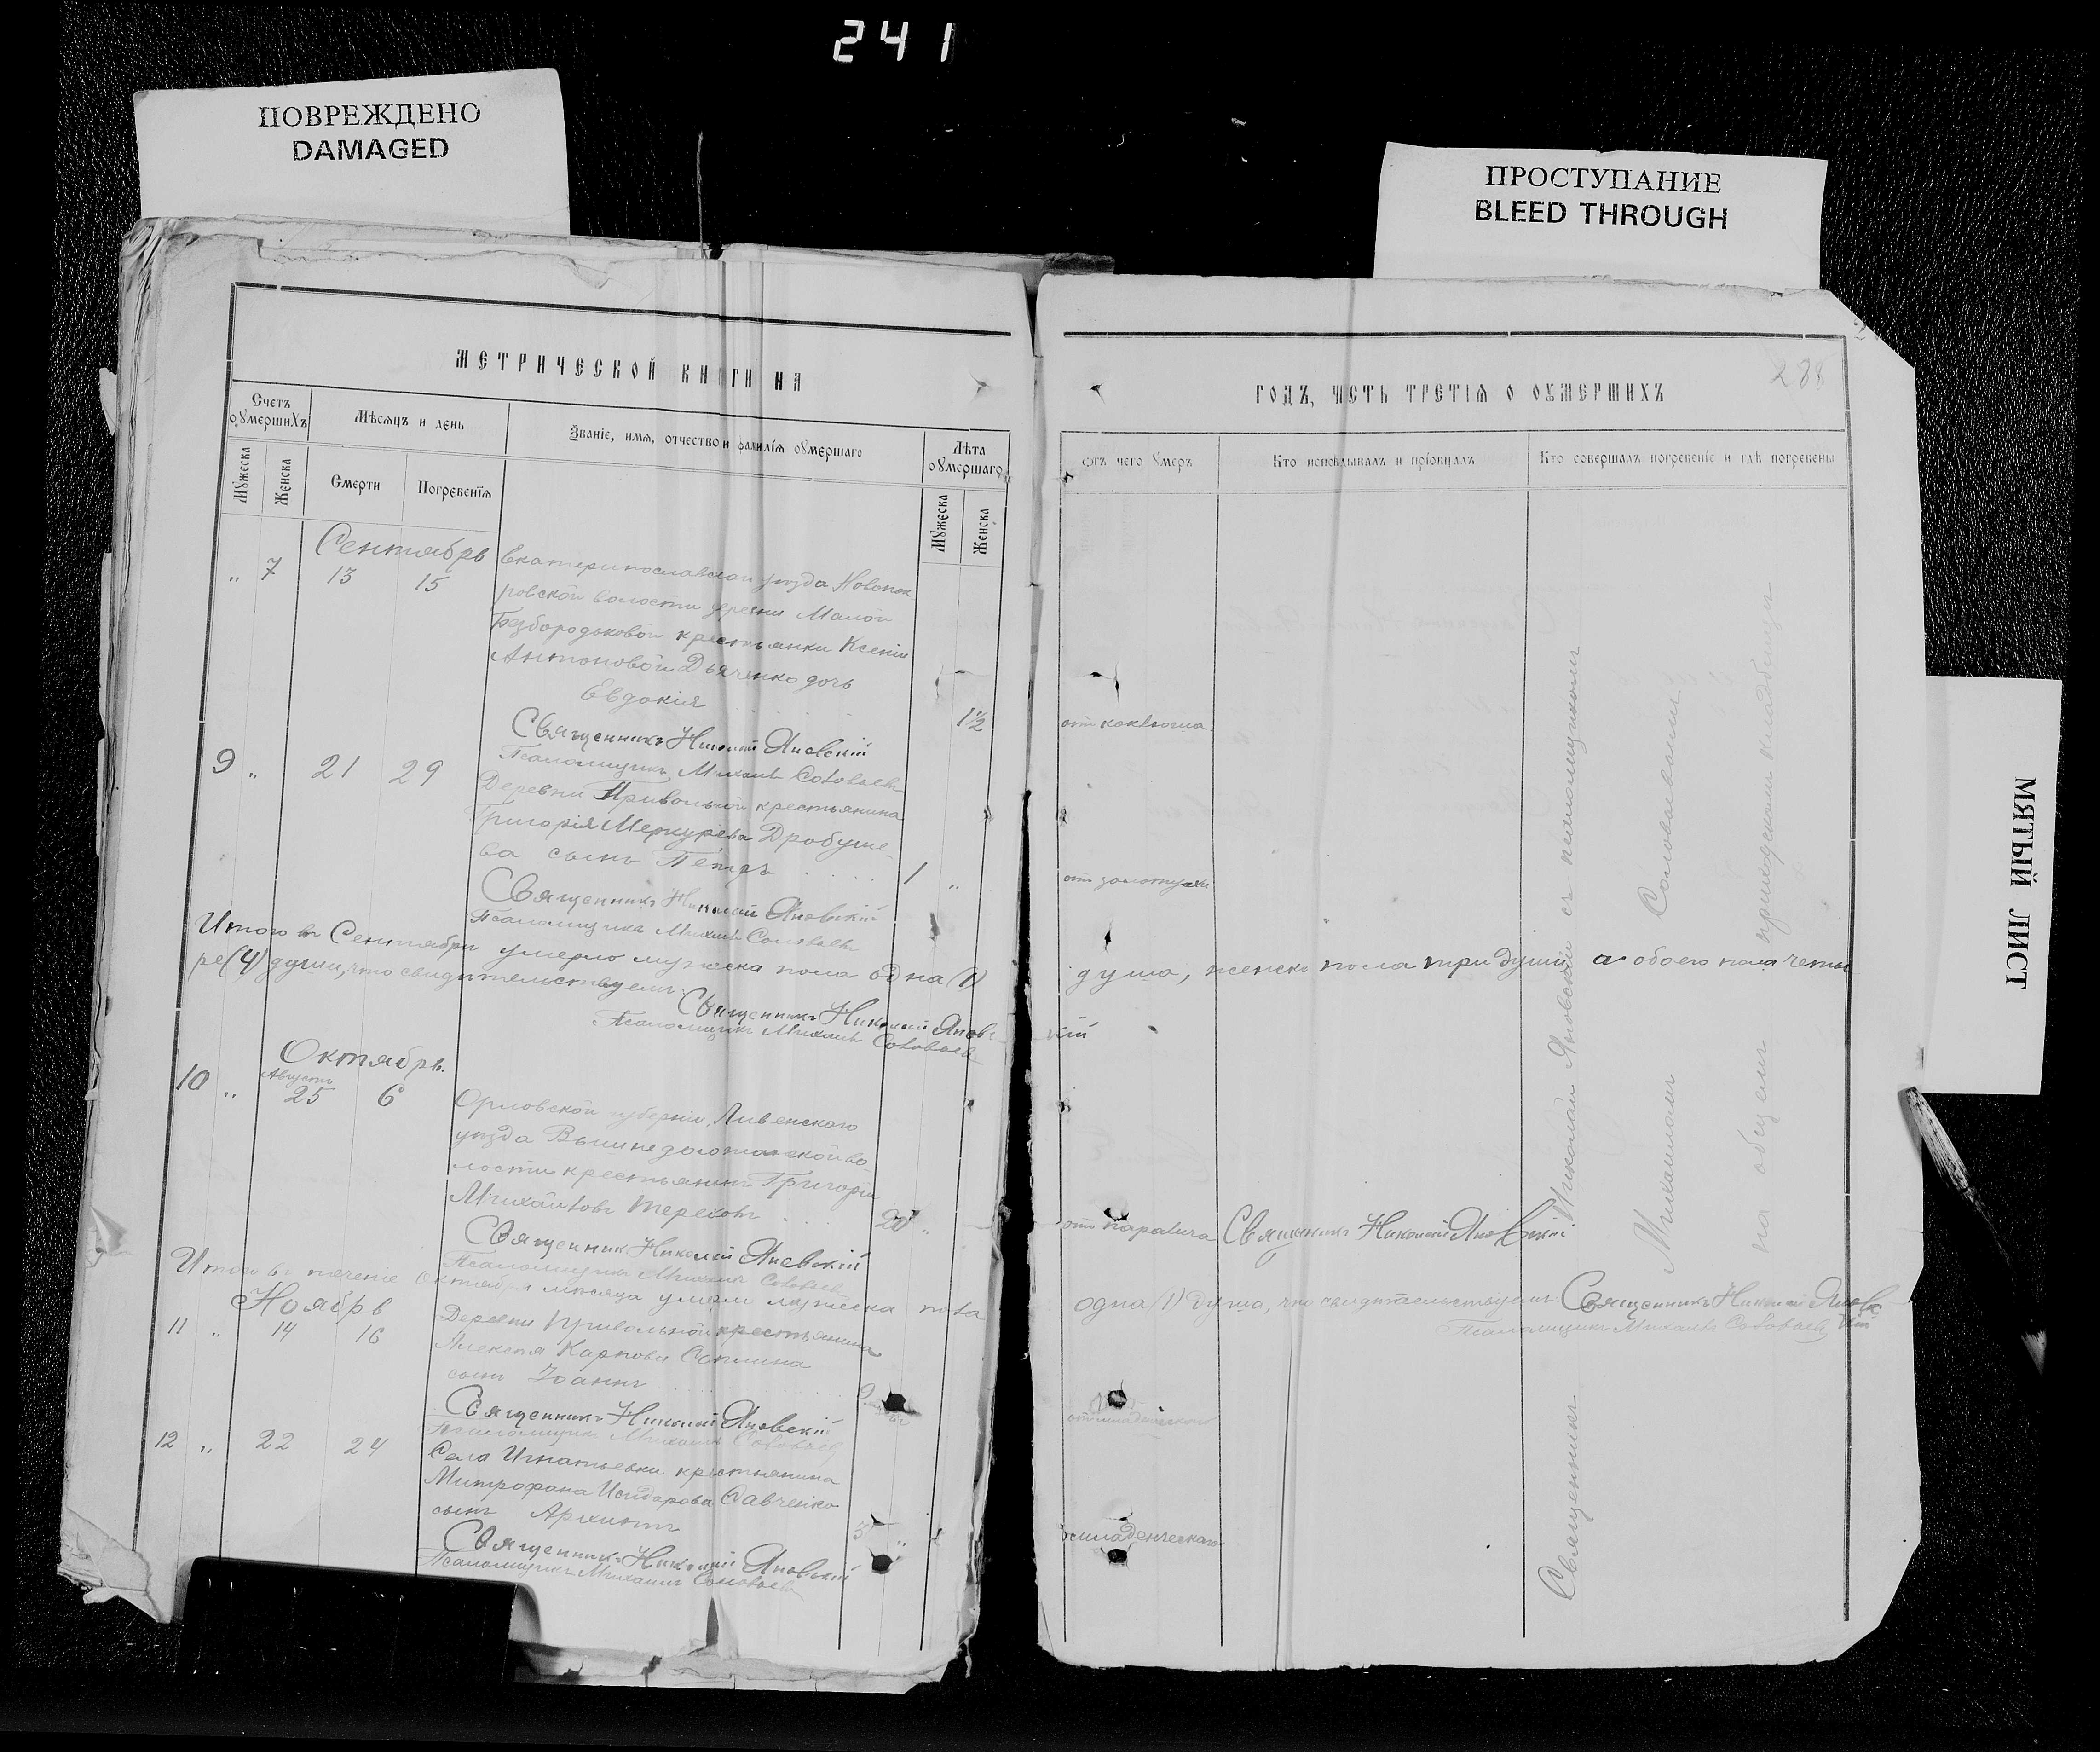 241
ПОВРЕЖДЕНО
DAMAGED
ПРОСТУПАНИЕ
BLEED THROUGH
МЯТЫЙ ЛИСТ
МЕТРИЧЕСКОЙ КНИГИ НА
Счетъ оумершихъ
Мѣсяцъ и день
Званіе, имя, отчество и фамилія оумершаго
Лѣта оумершаго
Мужеска
Женска
Смерти
Погребенія
Мужеска
Женска
Сентябрь
„ 7 13 15 Екатеринославскаго уѣзда Новопок
ровской волости деревни Малой
Безбородьковой крестьянки Ксеніи
Антоновой Дьяченко дочь
Евдокія 1½
Священникъ Николай Яновскій
Псаломщикъ Михаилъ Соловьевъ
9 „ 21 29 Деревни Привольной крестьянина
Григорія Меркурьева Дробуше-
ва сынъ Петръ 1 „
Священникъ Николай Яновскій
Псаломщикъ Михаилъ Соловьевъ
Итого въ Сентябрѣ умерло мужеска пола одна (1)
ре (4) души, что свидѣтельствуемъ:
Священникъ Николай Яновс
Псаломщикъ Михаилъ Соловьевъ
Октябрь.
Августъ
10 „ 25 6 Орловской губерніи, Ливенскаго
уѣзда во-
лости крестьянинъ Григорій
Михайловъ Тереховъ 20 „
Священникъ Николай Яновскій
Псаломщикъ Михаилъ Соловьевъ
Итого въ теченіе Октября мѣсяца умерло мужеска пола
Ноябрь
11 „ 14 16 Деревни Привольной крестьянина
Алексѣя Карпова
сынъ Іоаннъ
Священникъ Николай Яновскій
Псаломщикъ Михаилъ Соловьевъ
12 „ 22 24 Села Игнатьевки крестьянина
Митрофана Исидорова Савченко
сынъ Архипъ
Священникъ Николай Яновскій
Псаломщикъ Михаилъ Соловьевъ
288
ГОДЪ, ЧАСТЬ ТРЕТІЯ О ОУМЕРШИХЪ
отъ чего умеръ
Кто исповѣдывалъ и пріобщалъ
Кто совершалъ погребеніе и гдѣ погребены
отъ коклюша
отъ золотухи
душа, женска пола три души а обоего пола четы
кій
отъ паралича Священникъ Николай Яновскій
одна (1) душа, что свидѣтельствуемъ: Священникъ Николай Яновс
Псаломщикъ Михаилъ Соловьевъ кій
отъ младенческой
младенческаго
Священникъ Николай Яновскій съ псаломщикомъ
Михаиломъ Соловьевымъ
на общемъ приходскомъ кладбищѣ